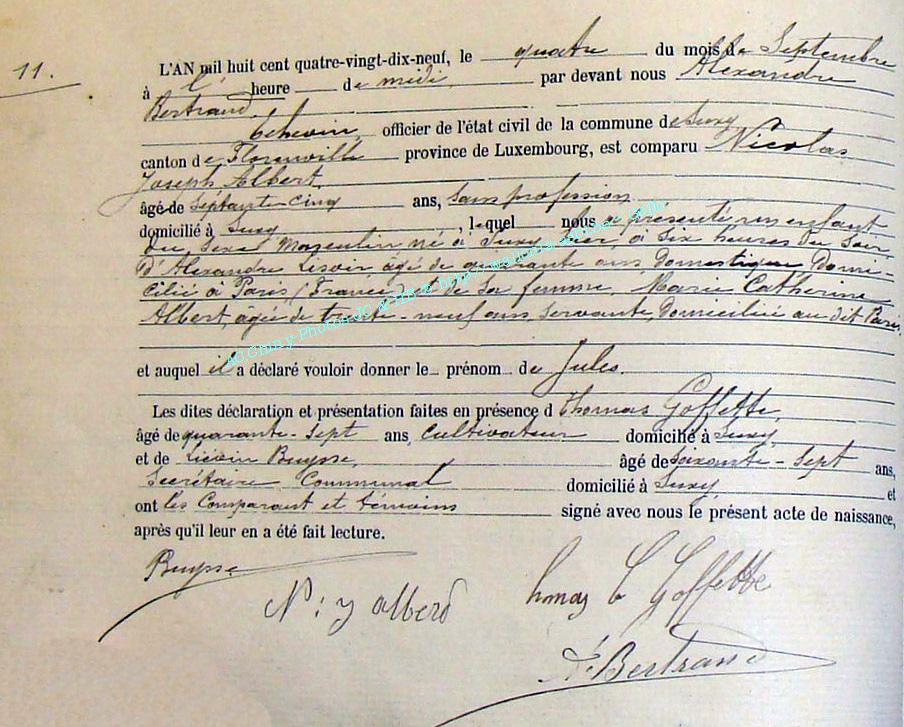 11.
L'AN mil huit cent quatre-vingt-dix-neuf, le quatre du mois de Septembre
à l' heure de midi, par devant nous Alexandre
Bertrand,
échevin, officier de l'état civil de la commune de Suxy
canton de Florenville province de Luxembourg, est comparu Nicolas
Joseph Albert,
âgé de Septante-Cinq ans, sans profession
domicilié à Suxy, lequel nous a présenté un enfant
du Sexe Masculin né à Suxy hier, à Six heures du Soir
d'Alexandre Lisoir, âgé de quarante ans Domestique Domi-
cilié à Paris (France) et de Sa femme, Marie Catherine
Albert, agée de trente-neuf ans, Servante, Domiciliée au dit Paris,
et auquel il a déclaré vouloir donner le prénom de Jules.
Les dites déclaration et présentation faites en présence d Thomas Goffette,
âgé de quarante-Sept ans, Cultivateur domicilié à Suxy,
et de Liévin Buysse, âgé de Soixante-Sept ans,
Secrétaire Communal domicilié à Suxy, et
ont les Comparant et témoins signé avec nous le présent acte de naissance,
après qu'il leur en a été fait lecture.
Buysse
N: j alberd
Goffette
A. Bertrand